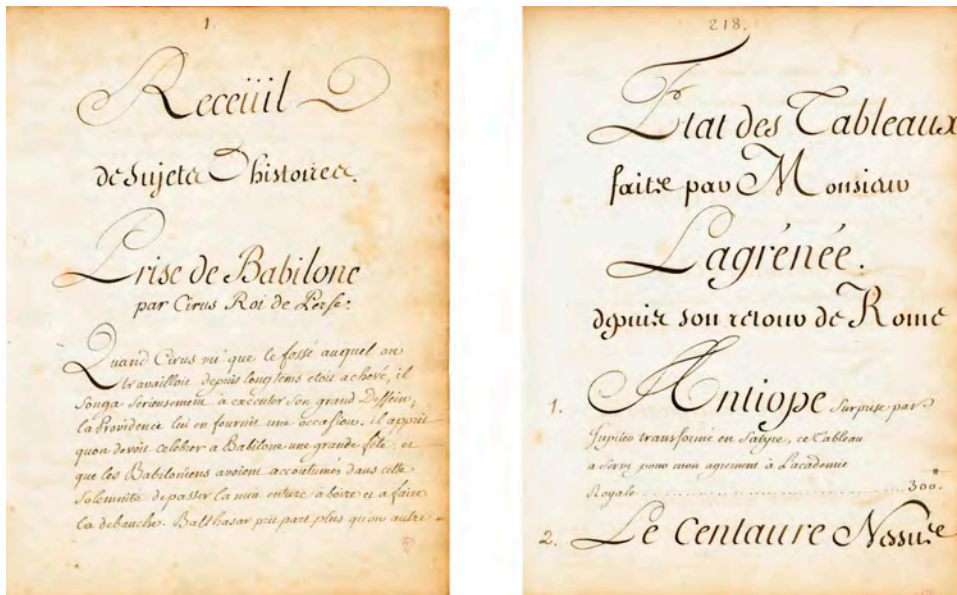 1.
Receüil
de Sujets D'histoires.
Prise de Babilone
par Cirus Roi de Perse.
Quand Cirus vit que le fossé auquel on
travailloit depuis longtems etoit achevé, il
songa serieusement à exécuter son grand Dessein;
la Providence lui en fournit une occasion. il apprit
quon devoit celebrer a Babilone une grande fête; et
que les Babiloniens avoient accoutumés dans cette
solemnité de passer la nuit entiere à boire et a faire
la debauche. Balthasar prit part plus qu'on autre
218.
Etat des Tableaux
faits par Monsieur
Lagrénée.
depuis son retour de Rome
1. Antiope Surprise par
Jupiter transformé en Satyre, ce Tableau
a servi pour mon agrement à L'academie
Royale ........ 300."
2. Le Centaure Nessus